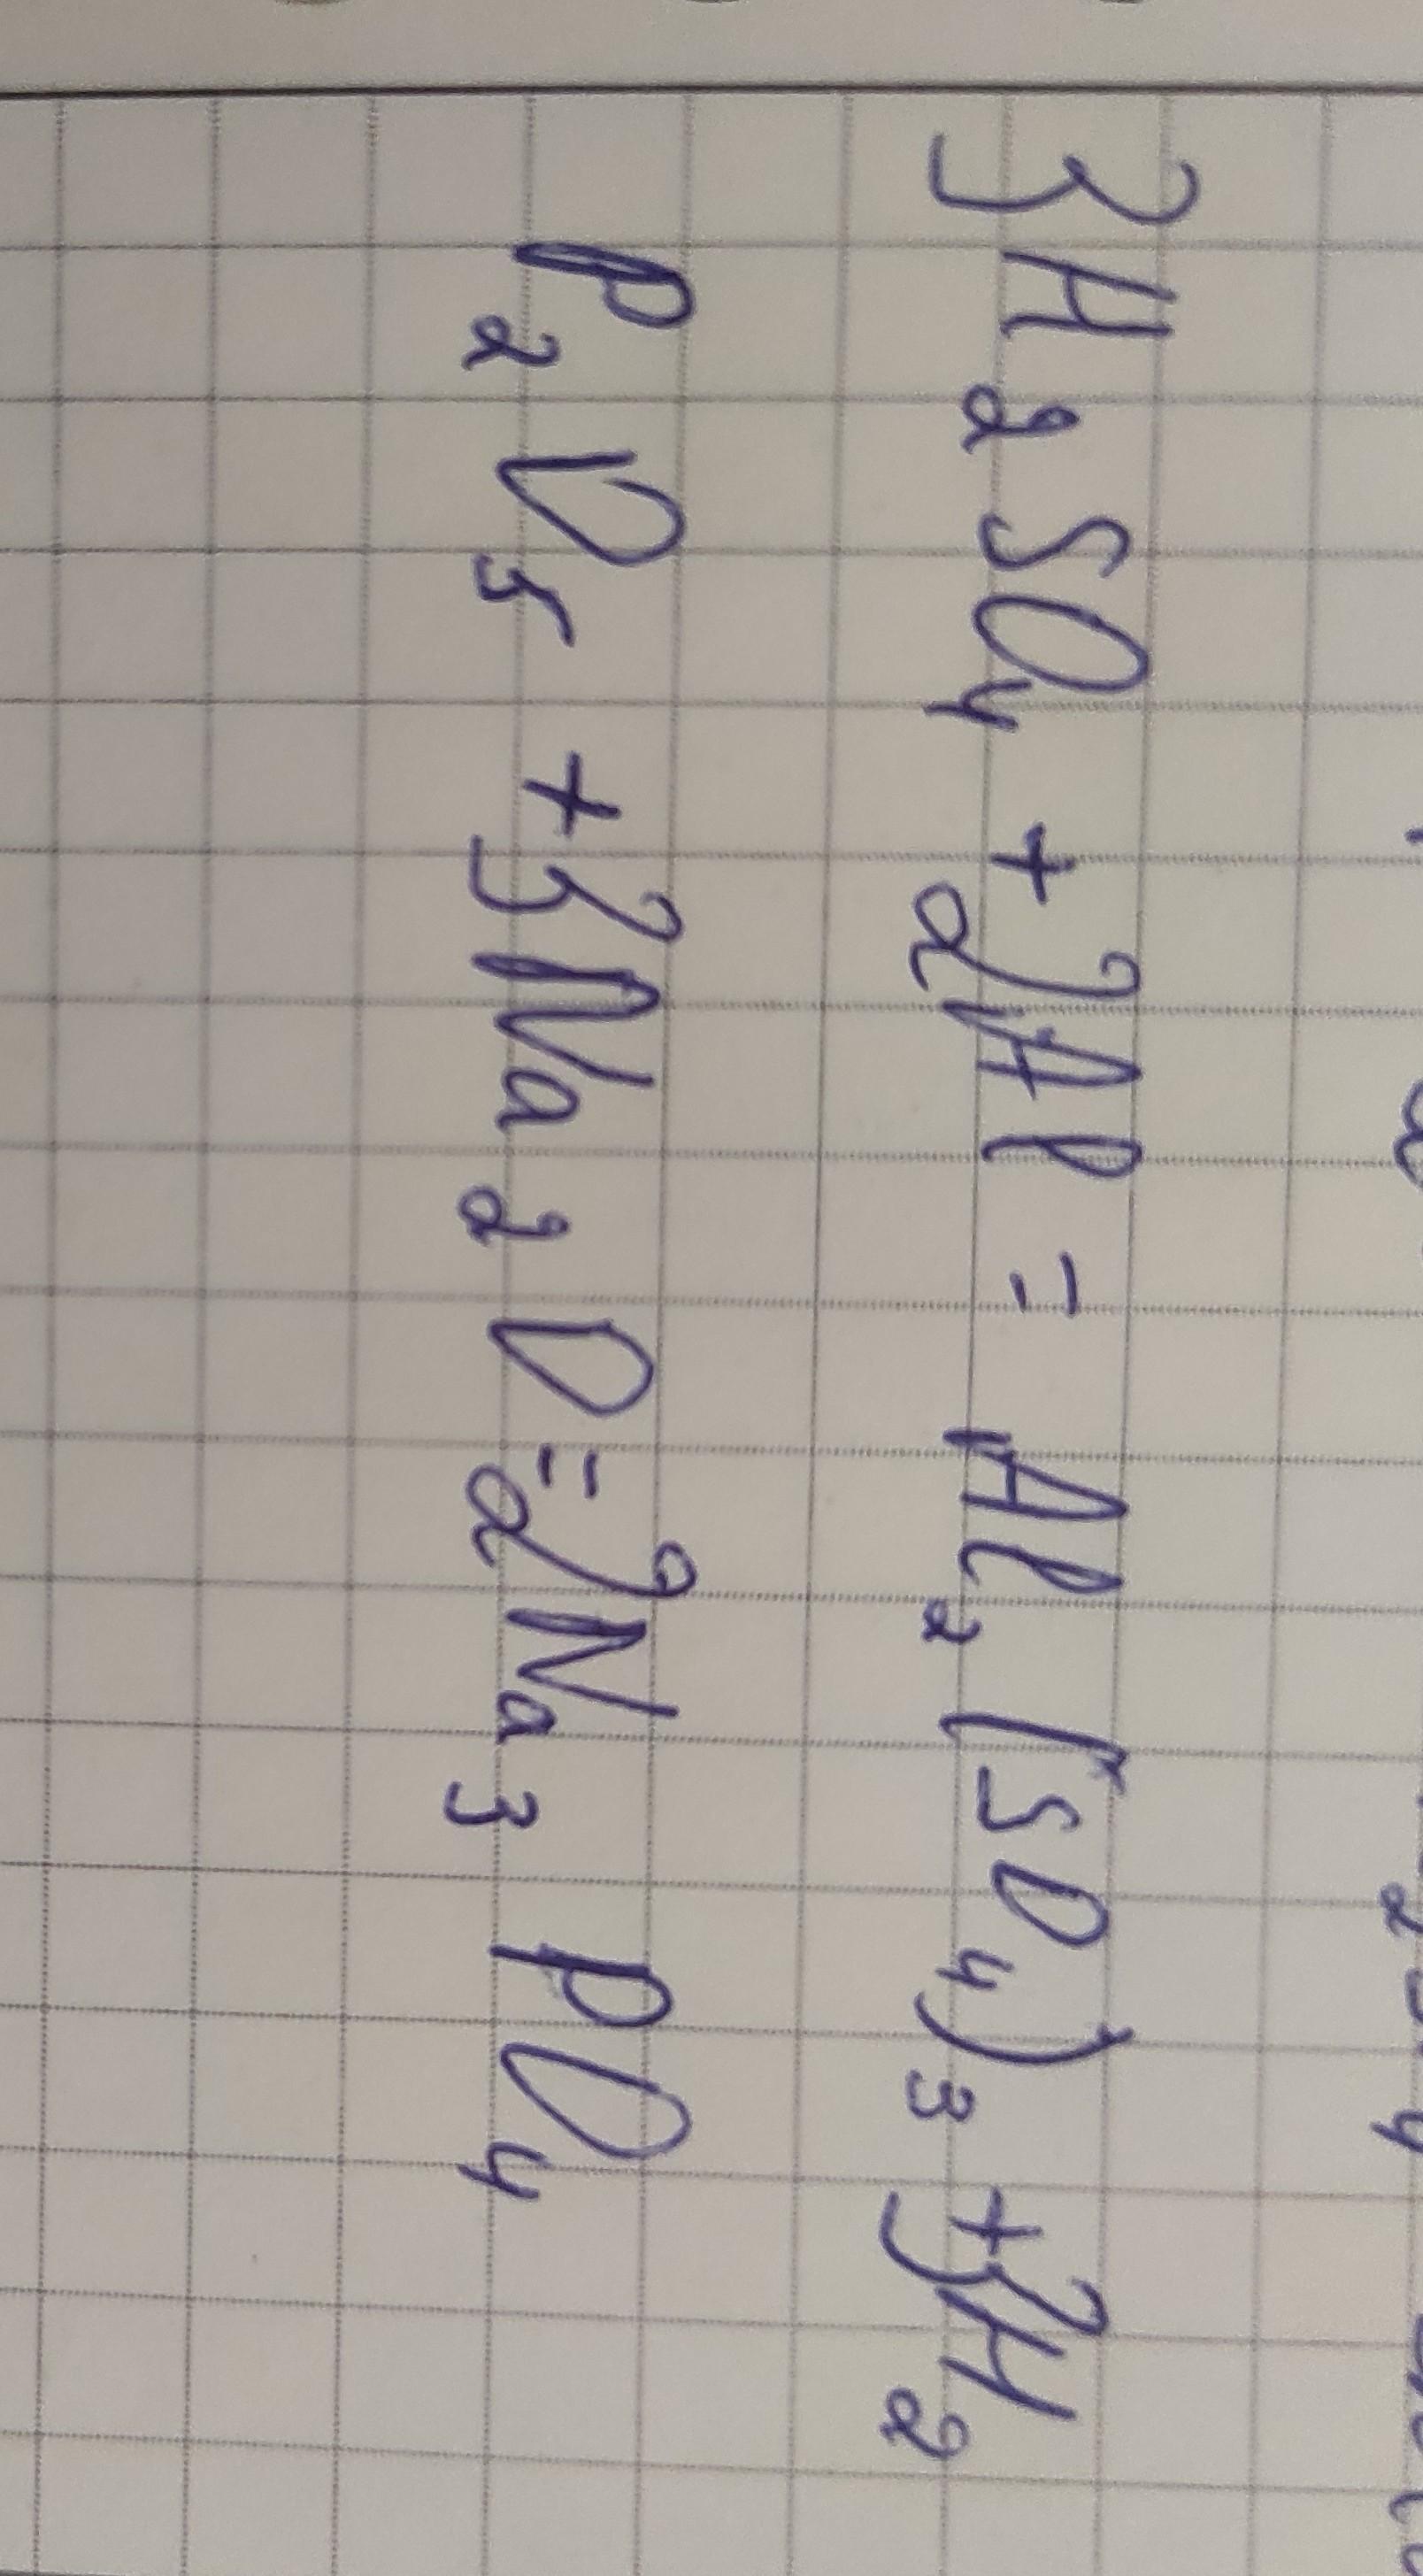 3H₂SO₄ + 2Al = Al₂(SO₄)₃ + 3H₂
P₂O₅ + 3Na₂O = 2Na₃PO₄